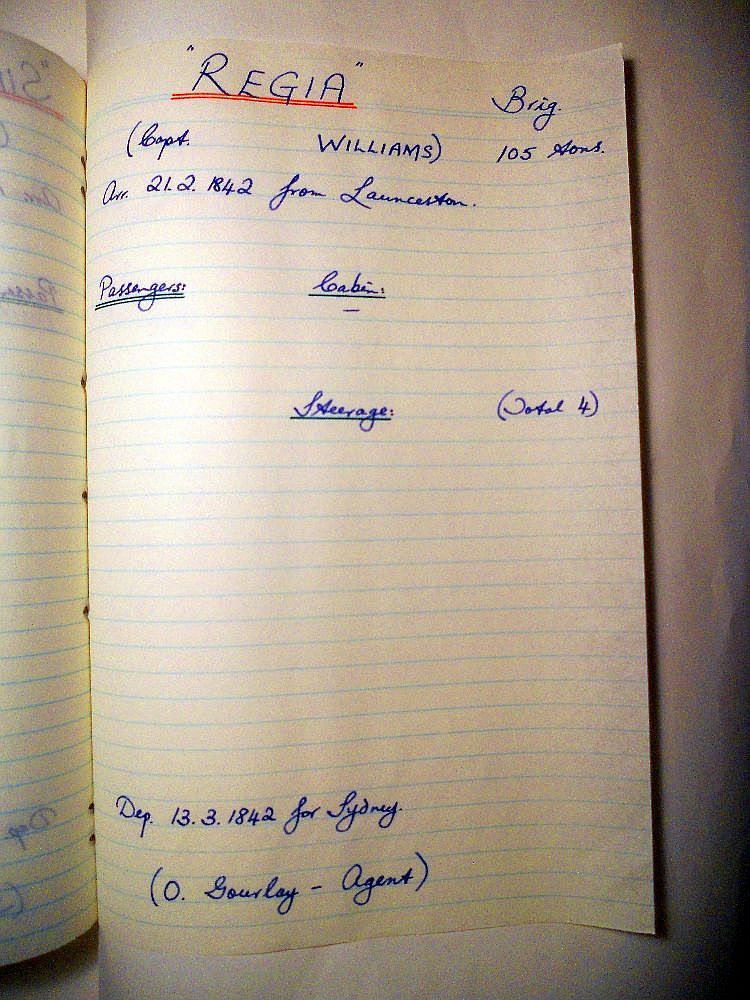 "REGIA" Brig.
(Capt. WILLIAMS) 105 tons.
Arr. 21.2.1842 from Launceston.
Passengers: Cabin:
—
Steerage: (Total 4)
Dep. 13.3.1842 for Sydney.
(O. Gourlay - Agent)